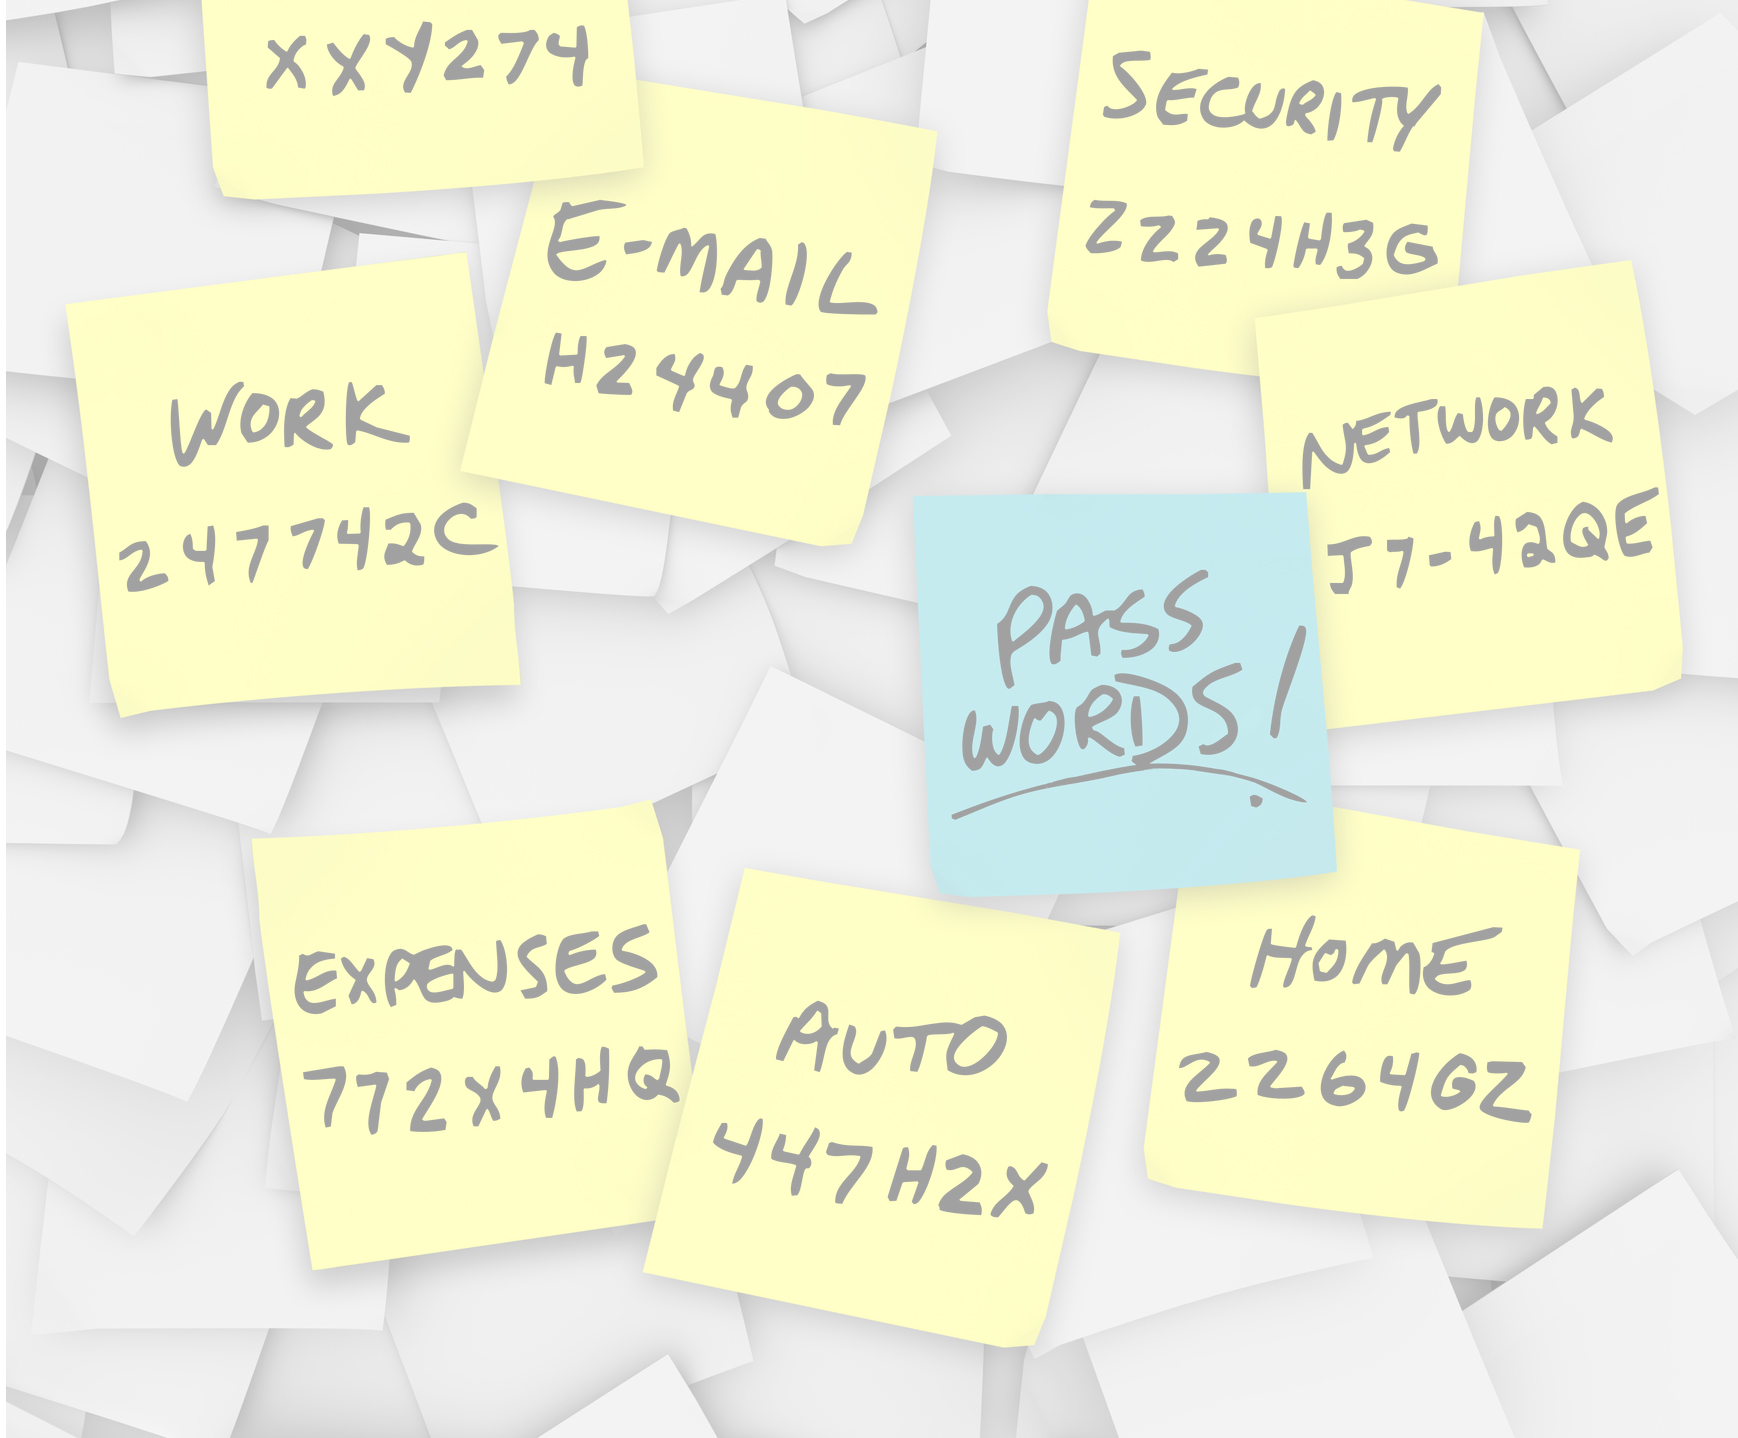 XXY274
SECURITY
Z224H3G
E-MAIL
H24407
WORK
247742C
NETWORK
J7-42QE
PASS
WORDS!
EXPENSES
772X4HQ
AUTO
447H2X
HOME
2264GZ